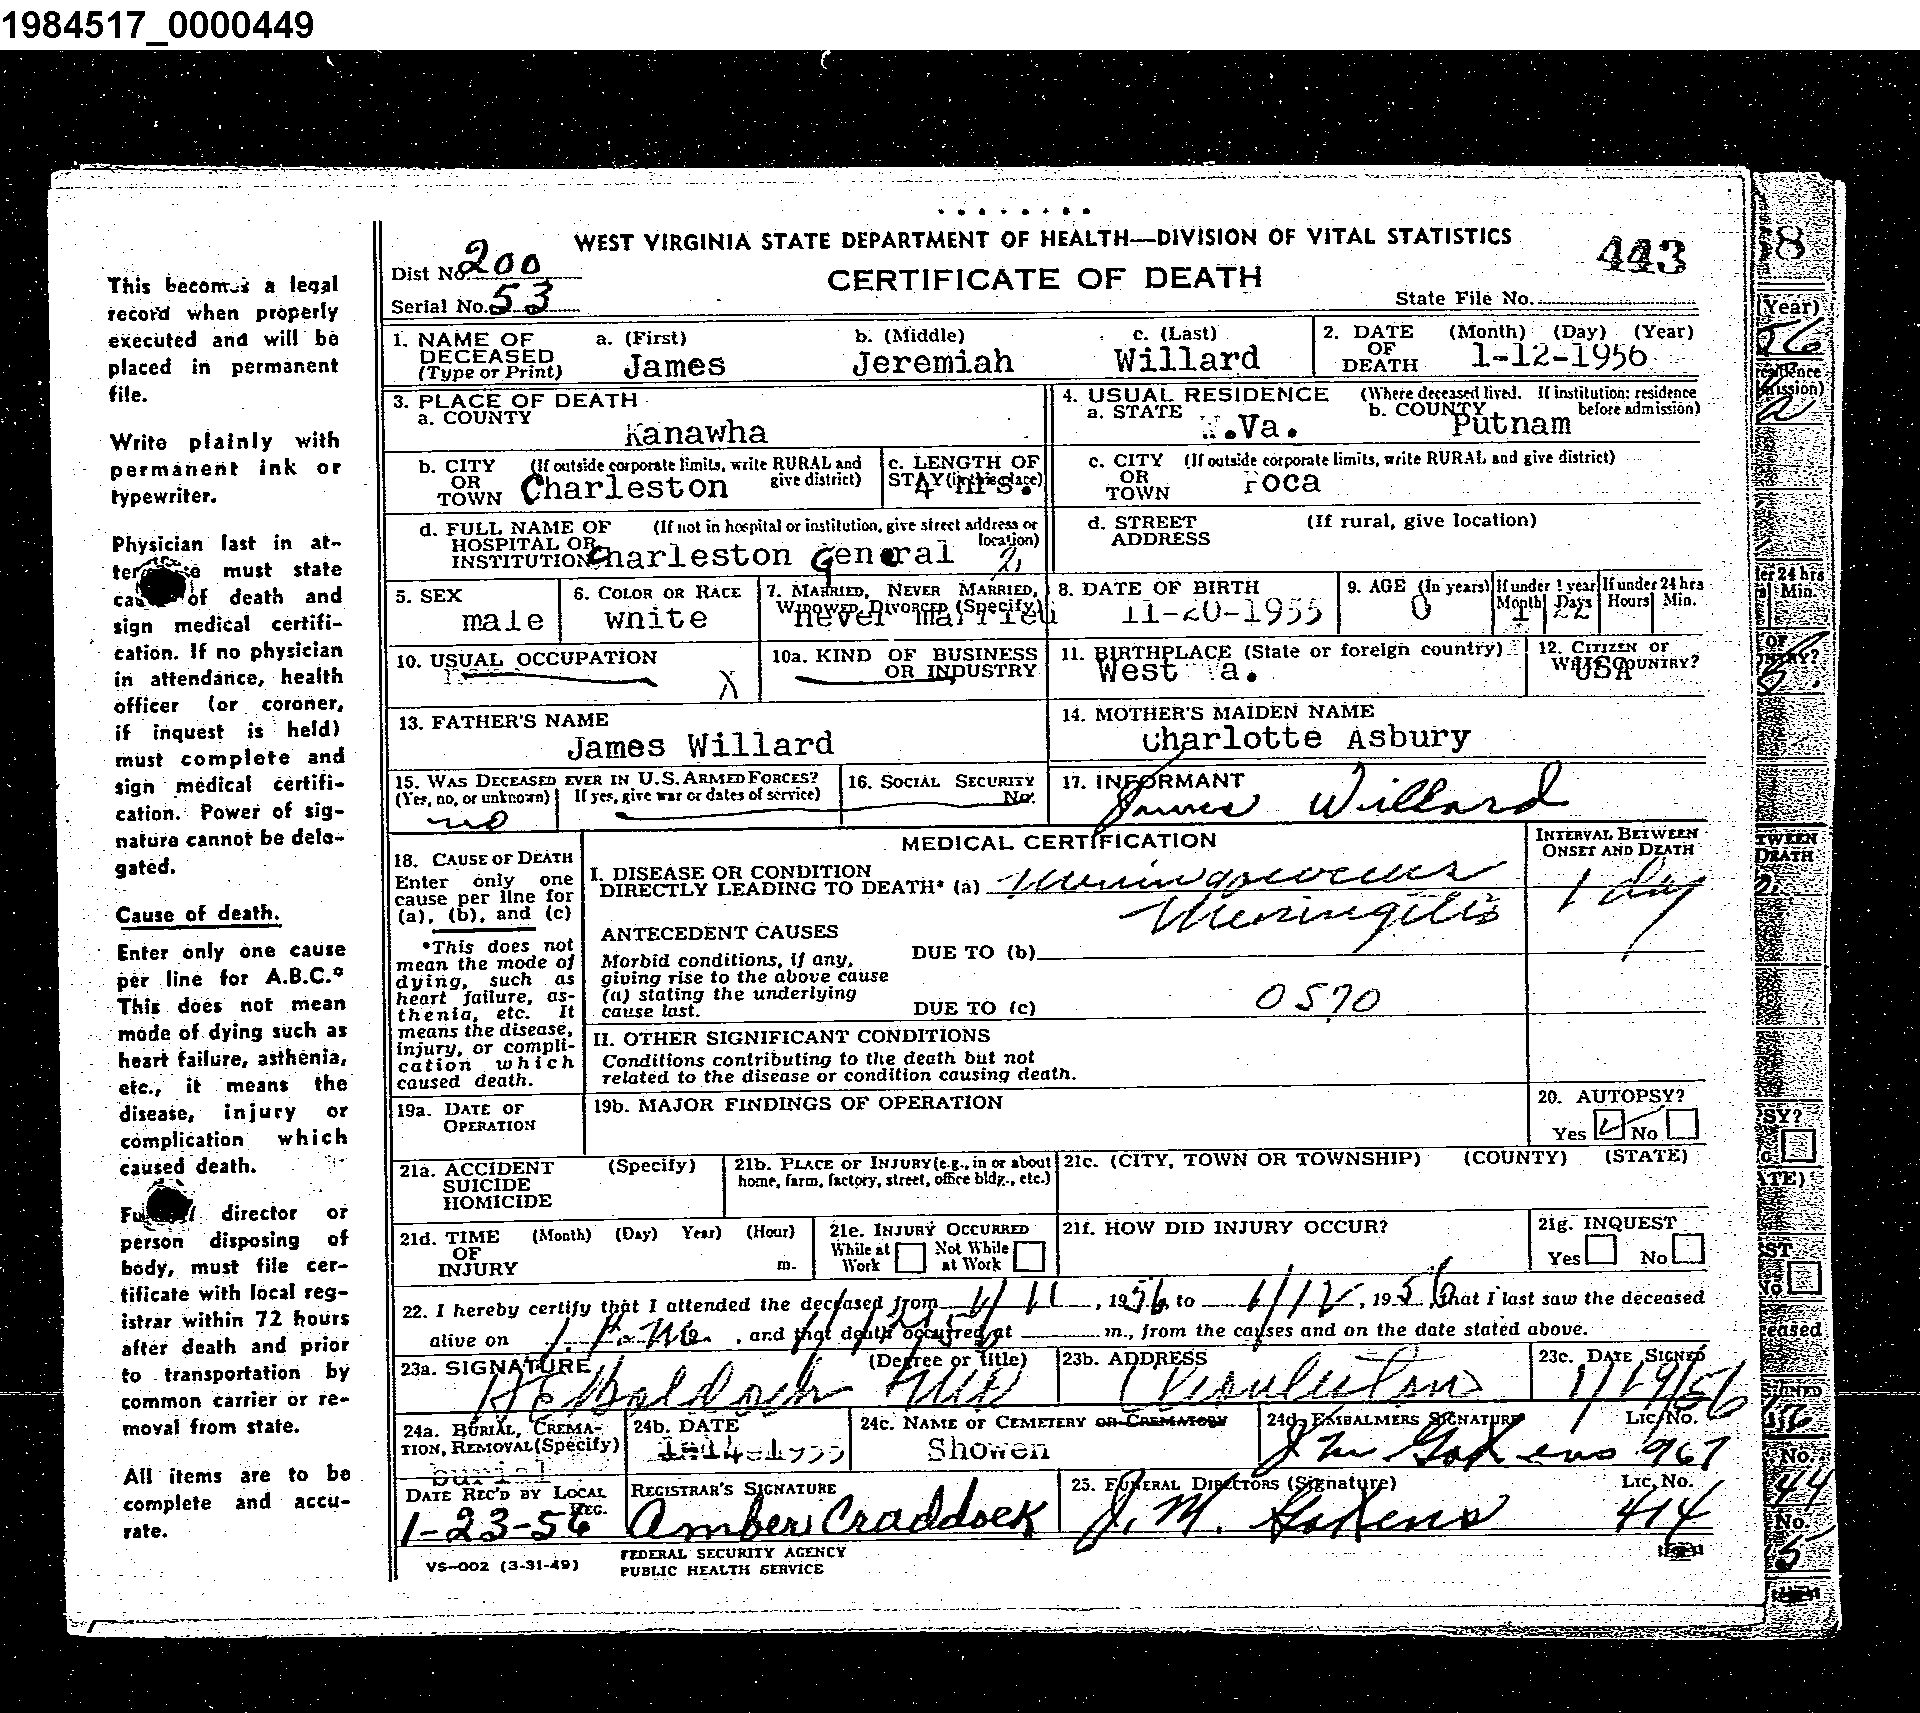 1984517_0000449
WEST VIRGINIA STATE DEPARTMENT OF HEALTH—DIVISION OF VITAL STATISTICS
443
Dist No. 200
CERTIFICATE OF DEATH
Serial No. 53
State File No.
This becomes a legal
record when properly
executed and will be
placed in permanent
file.
Write plainly with
permanent ink or
typewriter.
Physician last in at-
must state
of death and
sign medical certifi-
cation. If no physician
in attendance, health
officer (or coroner,
if inquest is held)
must complete and
sign medical certifi-
cation. Power of sig-
nature cannot be dele-
gated.
Cause of death.
Enter only one cause
per line for A.B.C.*
This does not mean
mode of dying such as
heart failure, asthenia,
etc., it means the
disease, injury or
complication which
caused death.
director or
person disposing of
body, must file cer-
tificate with local reg-
istrar within 72 hours
after death and prior
to transportation by
common carrier or re-
moval from state.
All items are to be
complete and accu-
rate.
1. NAME OF DECEASED (Type or Print)
a. (First) James
b. (Middle) Jeremiah
c. (Last) Willard
2. DATE OF DEATH (Month) (Day) (Year) 1-12-1956
3. PLACE OF DEATH
a. COUNTY Kanawha
4. USUAL RESIDENCE (Where deceased lived. If institution: residence before admission)
a. STATE .Va.
b. COUNTY Putnam
b. CITY OR TOWN (If outside corporate limits, write RURAL and give district) Charleston
c. LENGTH OF STAY (in this place) 4 hrs.
c. CITY OR TOWN (If outside corporate limits, write RURAL and give district) Poca
d. FULL NAME OF HOSPITAL OR INSTITUTION (If not in hospital or institution, give street address or location) Charleston General 2
d. STREET ADDRESS (If rural, give location)
5. SEX male
6. COLOR OR RACE white
7. MARRIED, NEVER MARRIED, WIDOWED, DIVORCED (Specify) never married
8. DATE OF BIRTH 11-20-1955
9. AGE (In years) 0
If under 1 year Month 1 Days 22
If under 24 hrs Hours Min.
10. USUAL OCCUPATION X
10a. KIND OF BUSINESS OR INDUSTRY
11. BIRTHPLACE (State or foreign country) West a.
12. CITIZEN OF WHAT COUNTRY? USA
13. FATHER'S NAME James Willard
14. MOTHER'S MAIDEN NAME Charlotte Asbury
15. WAS DECEASED EVER IN U.S. ARMED FORCES?
(Yes, no, or unknown) If yes, give war or dates of service)
no
16. SOCIAL SECURITY No.
17. INFORMANT James Willard
MEDICAL CERTIFICATION
INTERVAL BETWEEN ONSET AND DEATH
18. CAUSE OF DEATH
Enter only one
cause per line for
(a), (b), and (c)
*This does not
mean the mode of
dying, such as
heart failure, as-
thenia, etc. It
means the disease,
injury, or compli-
cation which
caused death.
I. DISEASE OR CONDITION
DIRECTLY LEADING TO DEATH* (a) Meningococcus
Meningitis
1 day
ANTECEDENT CAUSES
Morbid conditions, if any,
giving rise to the above cause
(a) stating the underlying
cause last.
DUE TO (b)
DUE TO (c) 0570
II. OTHER SIGNIFICANT CONDITIONS
Conditions contributing to the death but not
related to the disease or condition causing death.
19a. DATE OF OPERATION
19b. MAJOR FINDINGS OF OPERATION
20. AUTOPSY?
Yes No
21a. ACCIDENT SUICIDE HOMICIDE (Specify)
21b. PLACE OF INJURY (e.g., in or about home, farm, factory, street, office bldg., etc.)
21c. (CITY, TOWN OR TOWNSHIP) (COUNTY) (STATE)
21d. TIME OF INJURY (Month) (Day) Year) (Hour) m.
21e. INJURY OCCURRED
While at Work Not While at Work
21f. HOW DID INJURY OCCUR?
21g. INQUEST
Yes No
22. I hereby certify that I attended the deceased from 1/11, 1956, to 1/12, 1956, that I last saw the deceased
alive on , and that death occurred at m., from the causes and on the date stated above.
23a. SIGNATURE (Degree or title) MD
23b. ADDRESS Charleston
23c. DATE SIGNED 1/19/56
24a. BURIAL, CREMATION, REMOVAL (Specify) burial
24b. DATE 1-14-1955
24c. NAME OF CEMETERY OR CREMATORY Showen
24d. EMBALMERS SIGNATURE LIC. NO. 967
DATE REC'D BY LOCAL REG. 1-23-56
REGISTRAR'S SIGNATURE Amber Craddock
25. FUNERAL DIRECTORS (Signature) J. M. LIC. NO. 414
VS—002 (3-31-49)
FEDERAL SECURITY AGENCY
PUBLIC HEALTH SERVICE